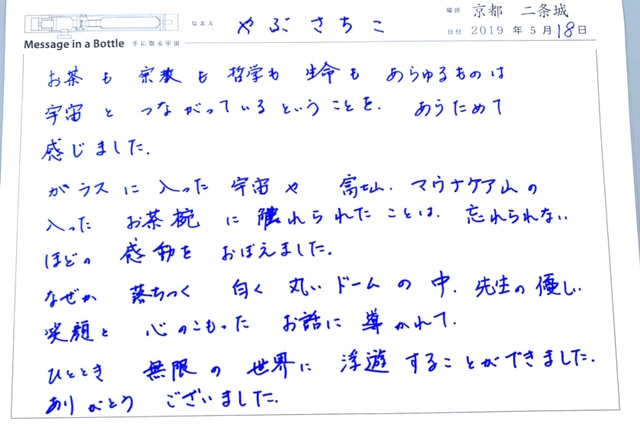 なまえ やぶ さちこ
場所 京都 二条城
Message in a Bottle 手に取る宇宙
日付 2019 年 5 月 18 日
お茶 も 宗教 も 哲学も 生命 も あらゆるものは
宇宙 と つながっている ということを、 あらためて
感じました。
ガラス に 入った 宇宙 や 富士山、マウナケア山 の
入った お茶碗 に 触れられた ことは、 忘れられない
ほどの 感動を おぼえました。
なぜか 落ちつく 白く 丸い ドーム の 中、先生の 優しい
笑顔と 心のこもった お話に 導かれて、
ひととき 無限の 世界に 浮遊 することができました。
ありがとう ございました。